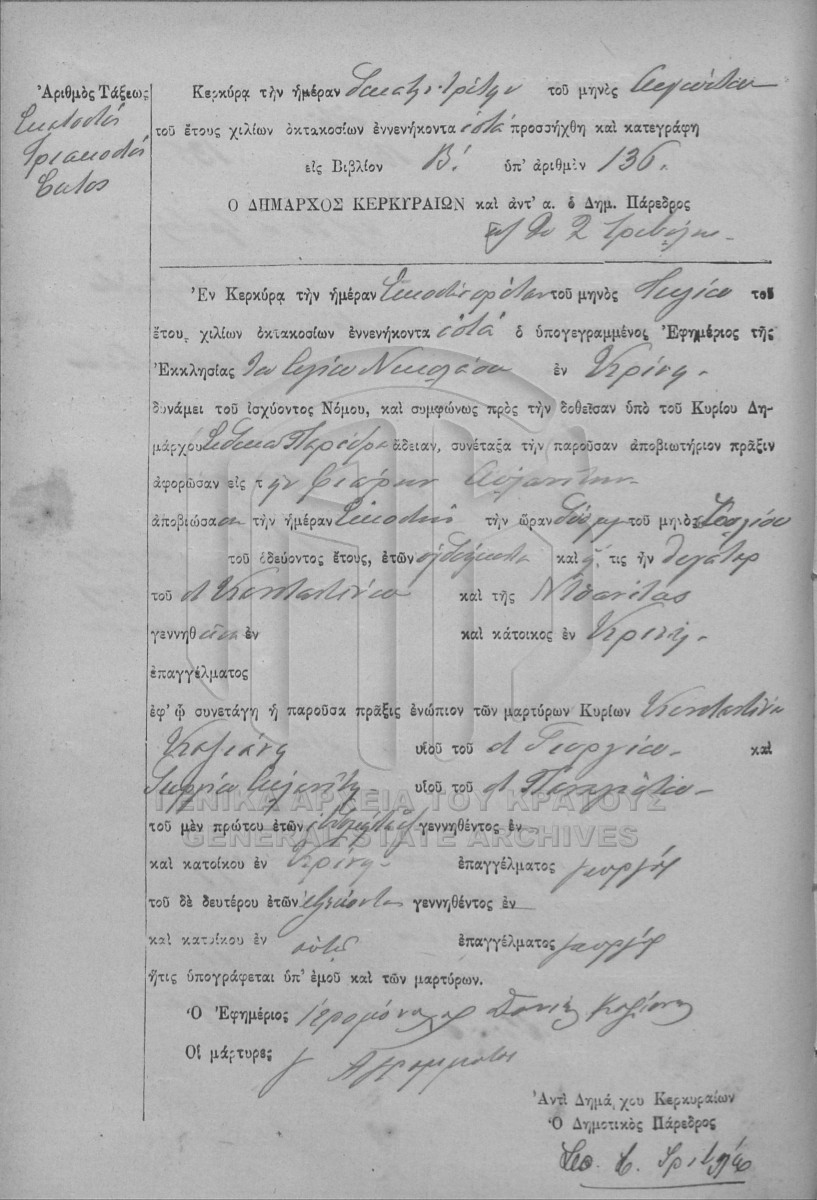 Ἀριθμὸς Τάξεως
Ἑκατοστὸς
Τριακοστὸς
Ἕκτος
Κερκύρᾳ τὴν ἡμέραν δεκάτην τρίτην τοῦ μηνὸς Αὐγούστου
τοῦ ἔτους χιλίων ὀκτακοσίων ἐννενήκοντα ἑπτὰ προσήχθη καὶ κατεγράφη
εἰς Βιβλίον Β! ὑπ' ἀριθμὸν 136.
Ο ΔΗΜΑΡΧΟΣ ΚΕΡΚΥΡΑΙΩΝ καὶ ἀντ' α. ὁ Δημ. Πάρεδρος
Ἐν Κερκύρᾳ τὴν ἡμέραν Εἰκοστὴν πρώτην τοῦ μηνὸς Ἰουλίου τοῦ
ἔτους χιλίων ὀκτακοσίων ἐννενήκοντα ἑπτὰ ὁ ὑπογεγραμμένος Ἐφημέριος τῆς
Ἐκκλησίας τοῦ Ἁγίου Νικολάου ἐν Κρίνῃ
δυνάμει τοῦ ἰσχύοντος Νόμου, καὶ συμφώνως πρὸς τὴν δοθεῖσαν ὑπὸ τοῦ Κυρίου Δη-
μάρχου Παρέδρου ἄδειαν, συνέταξα τὴν παροῦσαν ἀποβιωτήριον πρᾶξιν
ἀφορῶσαν εἰς τὴν
ἀποβιώσασαν τὴν ἡμέραν Εἰκοστὴν τὴν ὥραν τοῦ μηνὸς Ἰουλίου
τοῦ ὁδεύοντος ἔτους, ἐτῶν ὀγδοήκοντα καὶ ἥ, τις ἦν θυγάτηρ
τοῦ Κωνσταντίνου καὶ τῆς
γεννηθ ἐν καὶ κάτοικος ἐν Κρίνῃ
ἐπαγγέλματος
ἐφ' ᾧ συνετάγη ἡ παροῦσα πρᾶξις ἐνώπιον τῶν μαρτύρων Κυρίων Κωνσταντίνου
υἱοῦ τοῦ Γεωργίου καὶ
υἱοῦ τοῦ Παναγιώτου
ΓΕΝΙΚΑ ΑΡΧΕΙΑ ΤΟΥ ΚΡΑΤΟΥΣ
GENERAL STATE ARCHIVES
τοῦ μὲν πρώτου ἐτῶν γεννηθέντος ἐν
καὶ κατοίκου ἐν Κρίνῃ ἐπαγγέλματος γεωργός
τοῦ δὲ δευτέρου ἐτῶν ἑξήκοντα γεννηθέντος ἐν
καὶ κατοίκου ἐν ἐπαγγέλματος γεωργός
ἥτις ὑπογράφεται ὑπ' ἐμοῦ καὶ τῶν μαρτύρων.
Ὁ Ἐφημέριος Ἱερομόναχος
Οἱ μάρτυρες Ἀγράμματοι
Ἀντὶ Δημάρχου Κερκυραίων
Ὁ Δημοτικὸς Πάρεδρος